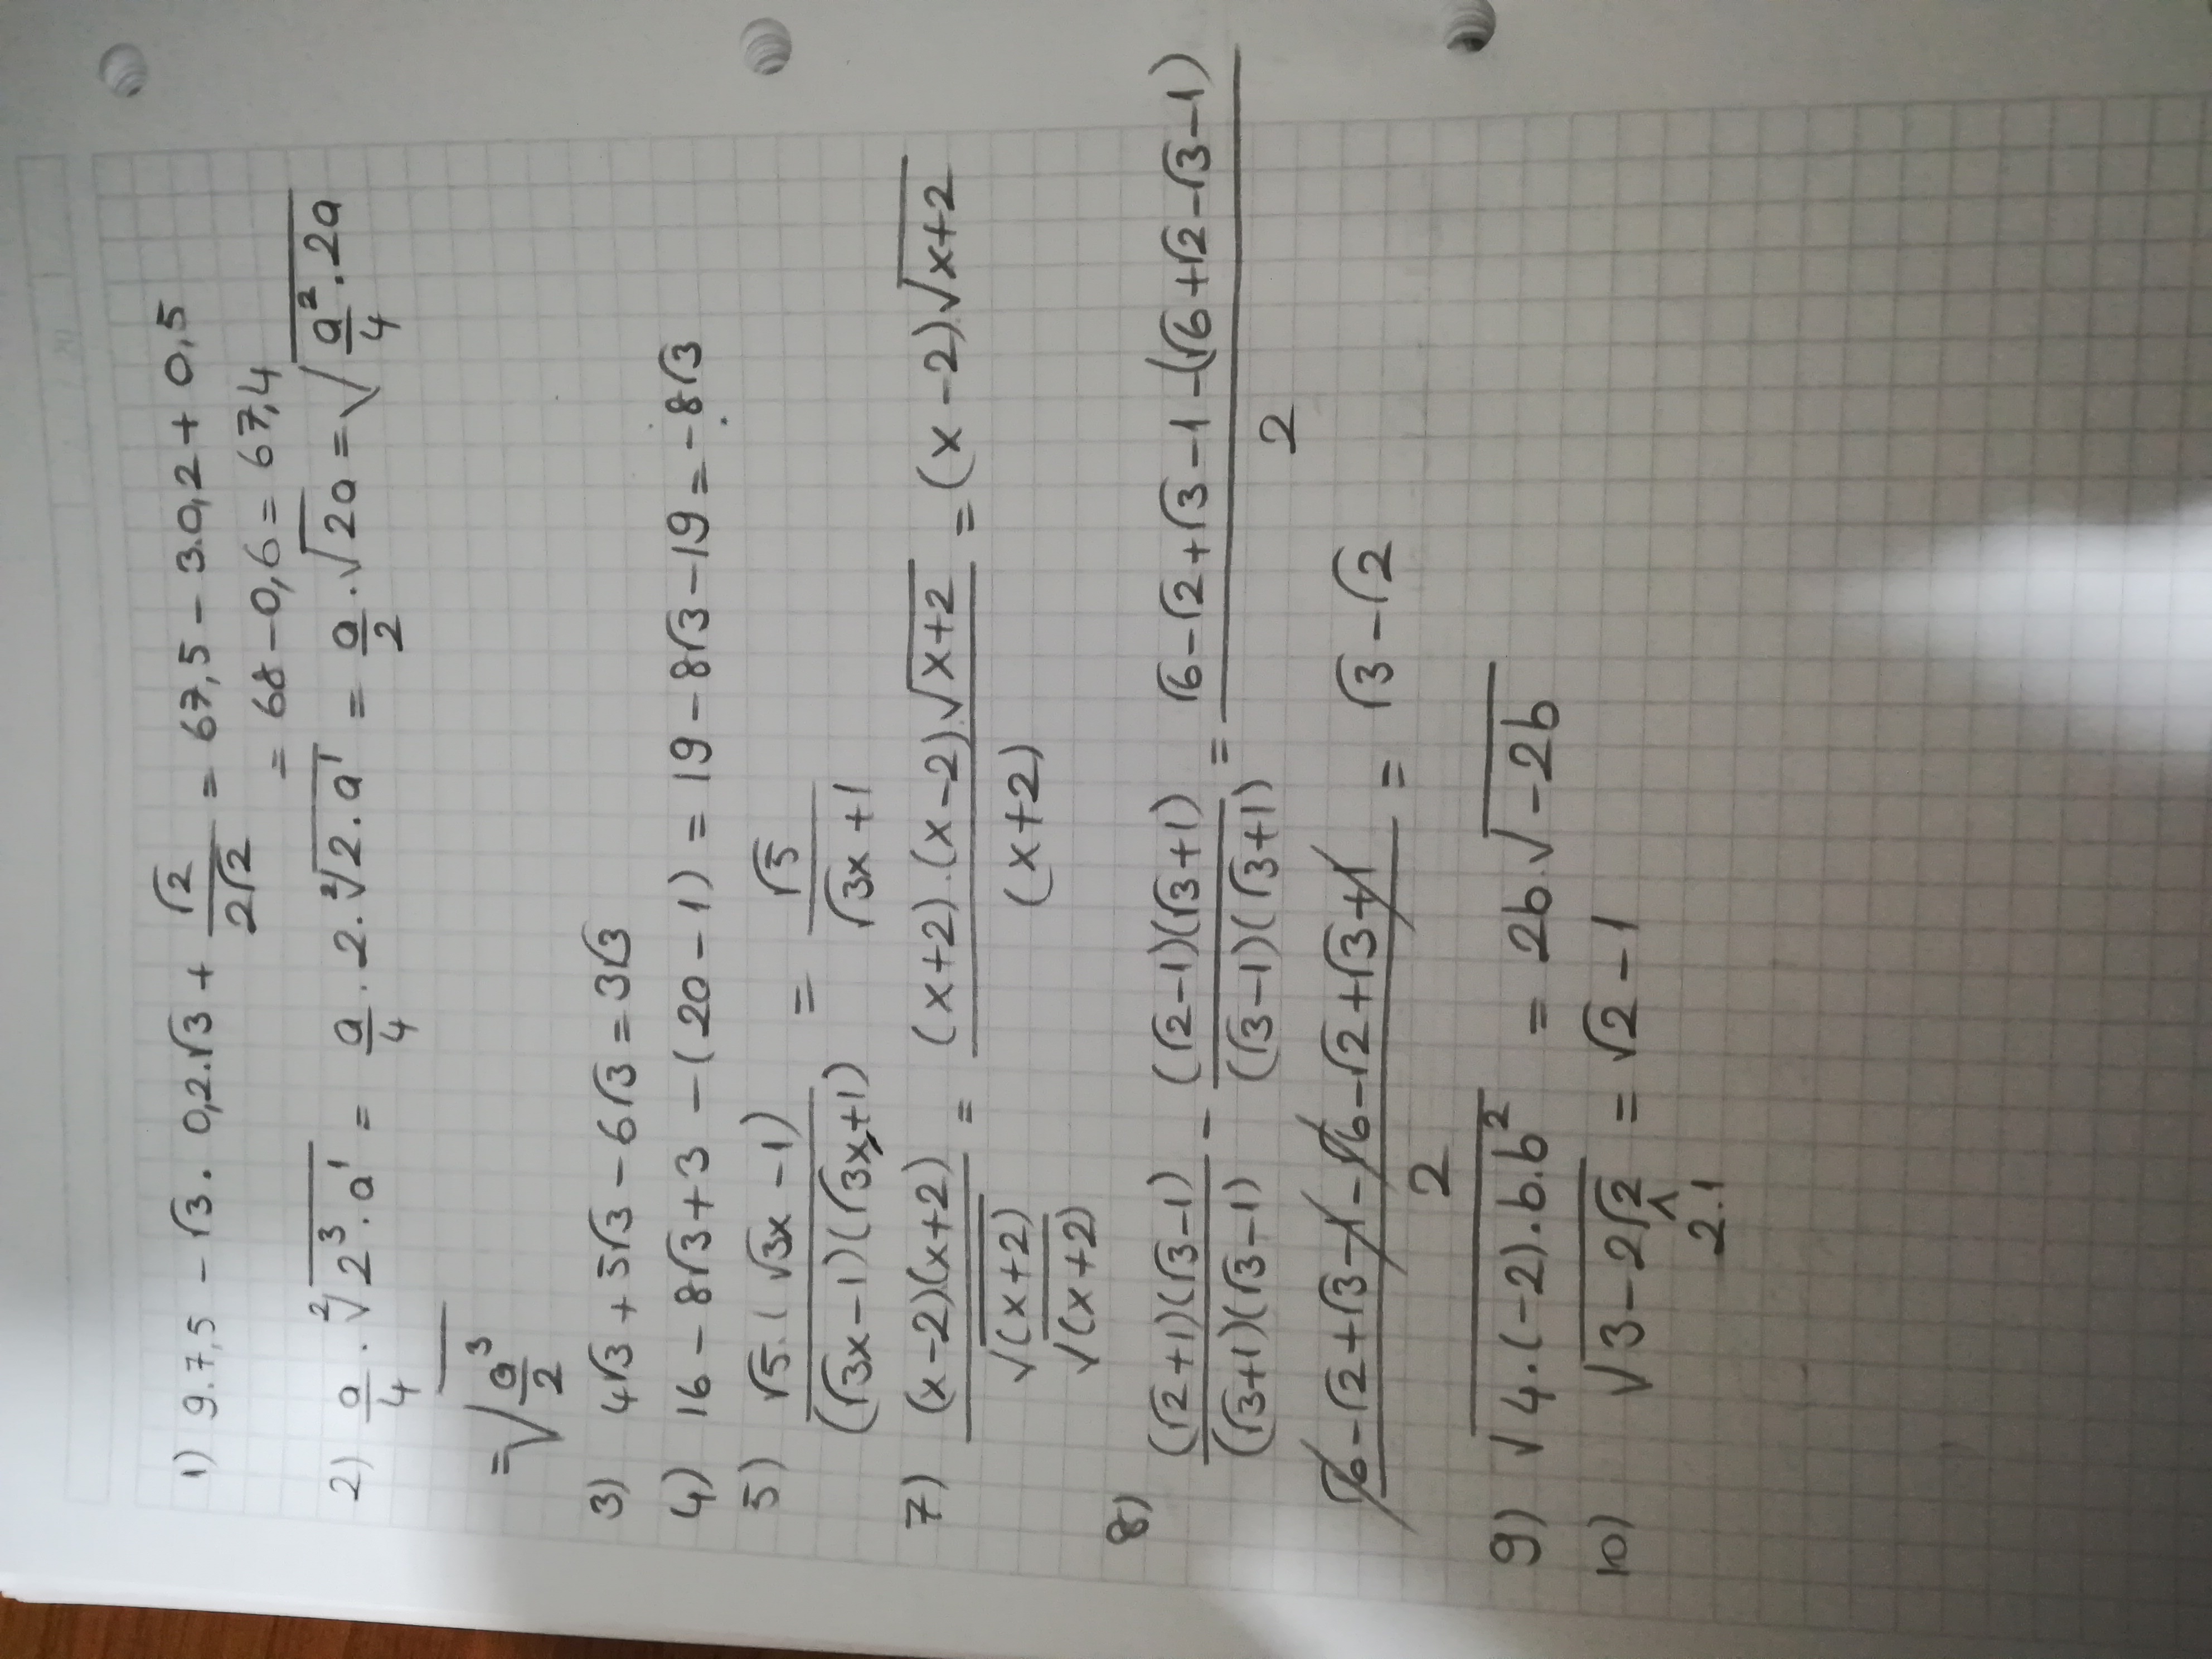 1) 9.7,5 - √3 . 0,2.√3 + √2/2√2 = 67,5 - 3.0,2 + 0,5
= 68 - 0,6 = 67,4
2) a/4 . ²√(2³.a¹) = a/4 . 2 . ²√(2.a¹) = a/2 . √(2a) = √(a²/4 . 2a)
= √(a³/2)
3) 4√3 + 5√3 - 6√3 = 3√3
4) 16 - 8√3 + 3 - (20 - 1) = 19 - 8√3 - 19 = -8√3
5) √5.(√3x - 1)/(√3x - 1)(√3x + 1) = √5/√3x + 1
7) (x-2)(x+2)/√(x+2) = (x+2).(x-2).√(x+2)/(x+2) = (x-2)√(x+2)
√(x+2)
8) (√2+1)(√3-1)/(√3+1)(√3-1) - (√2-1)(√3+1)/(√3-1)(√3+1) = √6-√2+√3-1-(√6+√2-√3-1)/2
√6-√2+√3-1-√6-√2+√3+1/2 = √3-√2
9) √(4.(-2).b.b²) = 2b.√(-2b)
10) √(3-2√2) = √2-1
2.1